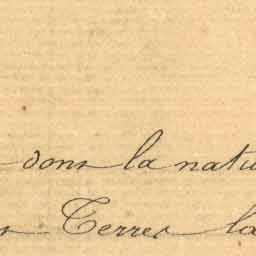 dons la natu
s Terres la